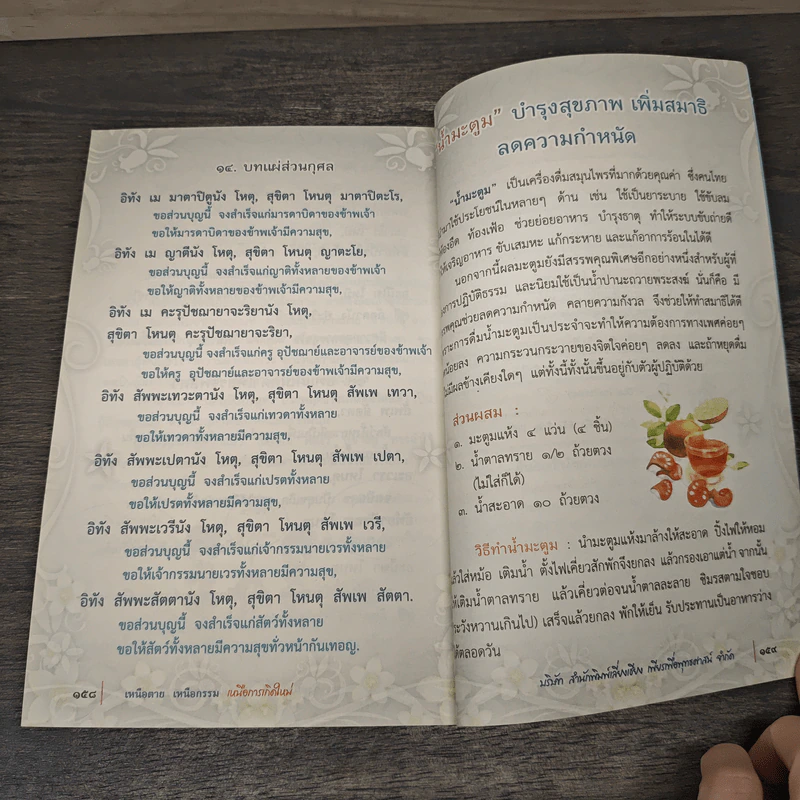 ๑๔. บทแผ่ส่วนกุศล
อิทัง เม มาตาปิตูนัง โหตุ, สุขิตา โหนตุ มาตาปิตะโร,
ขอส่วนบุญนี้ จงสำเร็จแก่มารดาบิดาของข้าพเจ้า
ขอให้มารดาบิดาของข้าพเจ้ามีความสุข,
อิทัง เม ญาตีนัง โหตุ, สุขิตา โหนตุ ญาตะโย,
ขอส่วนบุญนี้ จงสำเร็จแก่ญาติทั้งหลายของข้าพเจ้า
ขอให้ญาติทั้งหลายของข้าพเจ้ามีความสุข,
อิทัง เม คะรุปัชฌายาจะริยานัง โหตุ,
สุขิตา โหนตุ คะรุปัชฌายาจะริยา,
ขอส่วนบุญนี้ จงสำเร็จแก่ครู อุปัชฌาย์และอาจารย์ของข้าพเจ้า
ขอให้ครู อุปัชฌาย์และอาจารย์ของข้าพเจ้ามีความสุข,
อิทัง สัพพะเทวะตานัง โหตุ, สุขิตา โหนตุ สัพเพ เทวา,
ขอส่วนบุญนี้ จงสำเร็จแก่เทวดาทั้งหลาย
ขอให้เทวดาทั้งหลายมีความสุข,
อิทัง สัพพะเปตานัง โหตุ, สุขิตา โหนตุ สัพเพ เปตา,
ขอส่วนบุญนี้ จงสำเร็จแก่เปรตทั้งหลาย
ขอให้เปรตทั้งหลายมีความสุข,
อิทัง สัพพะเวรีนัง โหตุ, สุขิตา โหนตุ สัพเพ เวรี,
ขอส่วนบุญนี้ จงสำเร็จแก่เจ้ากรรมนายเวรทั้งหลาย
ขอให้เจ้ากรรมนายเวรทั้งหลายมีความสุข,
อิทัง สัพพะสัตตานัง โหตุ, สุขิตา โหนตุ สัพเพ สัตตา.
ขอส่วนบุญนี้ จงสำเร็จแก่สัตว์ทั้งหลาย
ขอให้สัตว์ทั้งหลายมีความสุขทั่วหน้ากันเทอญ.
๑๕๘ เหนือตาย เหนือกรรม เหนือการเกิดใหม่
น้ำมะตูม” บำรุงสุขภาพ เพิ่มสมาธิ
ลดความกำหนัด
“น้ำมะตูม” เป็นเครื่องดื่มสมุนไพรที่มากด้วยคุณค่า ซึ่งคนไทย
มาใช้ประโยชน์ในหลายๆ ด้าน เช่น ใช้เป็นยาระบาย ใช้ขับลม
ท้องอืด ท้องเฟ้อ ช่วยย่อยอาหาร บำรุงธาตุ ทำให้ระบบขับถ่ายดี
ให้เจริญอาหาร ขับเสมหะ แก้กระหาย และแก้อาการร้อนในได้ดี
นอกจากนี้ผลมะตูมยังมีสรรพคุณพิเศษอีกอย่างหนึ่งสำหรับผู้ที่
การปฏิบัติธรรม และนิยมใช้เป็นน้ำปานะถวายพระสงฆ์ นั่นก็คือ มี
คุณช่วยลดความกำหนัด คลายความกังวล จึงช่วยให้ทำสมาธิได้ดี
การดื่มน้ำมะตูมเป็นประจำจะทำให้ความต้องการทางเพศค่อยๆ
น้อยลง ความกระวนกระวายของจิตใจค่อยๆ ลดลง และถ้าหยุดดื่ม
ไม่มีผลข้างเคียงใดๆ แต่ทั้งนี้ทั้งนั้นขึ้นอยู่กับตัวผู้ปฏิบัติด้วย
ส่วนผสม :
๑. มะตูมแห้ง ๔ แว่น (๔ ชิ้น)
๒. น้ำตาลทราย ๑/๒ ถ้วยตวง
(ไม่ใส่ก็ได้)
๓. น้ำสะอาด ๑๐ ถ้วยตวง
วิธีทำน้ำมะตูม : นำมะตูมแห้งมาล้างให้สะอาด ปิ้งไฟให้หอม
แล้วใส่หม้อ เติมน้ำ ตั้งไฟเคี่ยวสักพักจึงยกลง แล้วกรองเอาแต่น้ำ จากนั้น
ให้เติมน้ำตาลทราย แล้วเคี่ยวต่อจนน้ำตาลละลาย ชิมรสตามใจชอบ
ระวังหวานเกินไป) เสร็จแล้วยกลง พักให้เย็น รับประทานเป็นอาหารว่าง
ได้ตลอดวัน
บริษัท สำนักพิมพ์เลี่ยงเชียง เพียรเพื่อพุทธศาสน์ จำกัด ๑๕๙